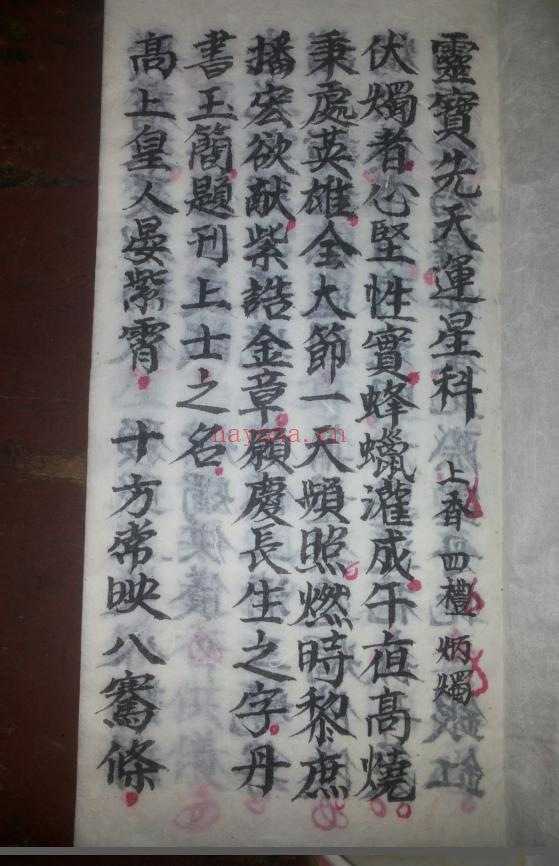 靈寶先天運星科 上香四禮 炳燭
伏燭者心堅性實蜂蠟灌成午夜高燒
秉處英雄全大節一天頻照燃時黎庶
播宏欲献紫誥金章願慶長生之字丹
書玉簡題刊上士之名
高上皇人晏紫霄 十方常映八騫條
nayona.cn